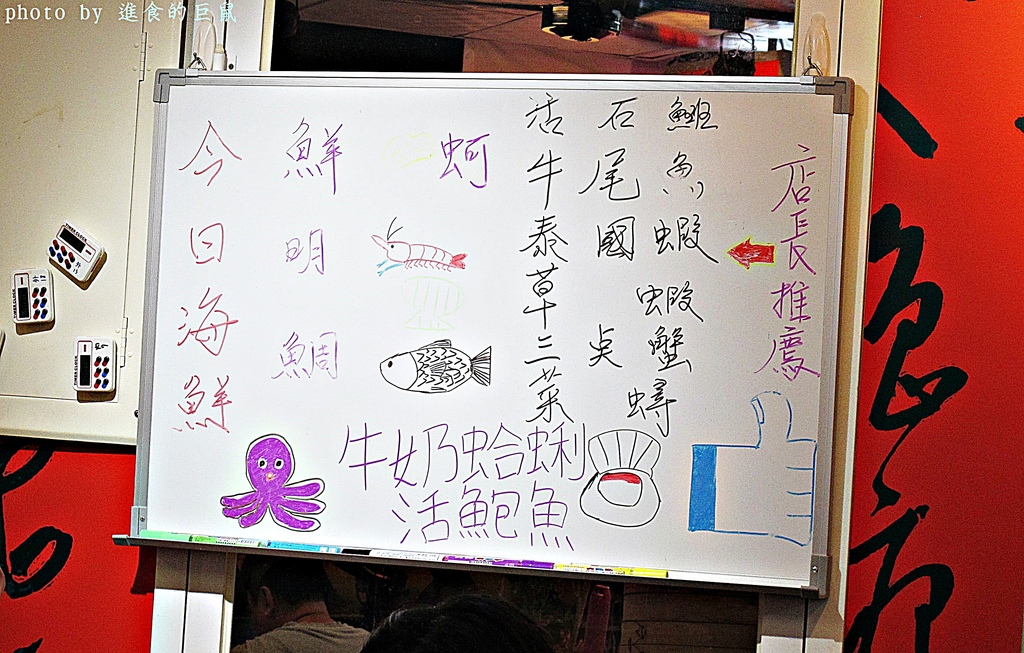 photo by 進食的巨鼠
今日海鮮
鮮蚵
明
鯛
活石
牛尾魚
泰國蝦
草蝦
三点蟹
菜蟳
店長推薦
牛奶蛤蜊
活鮑魚